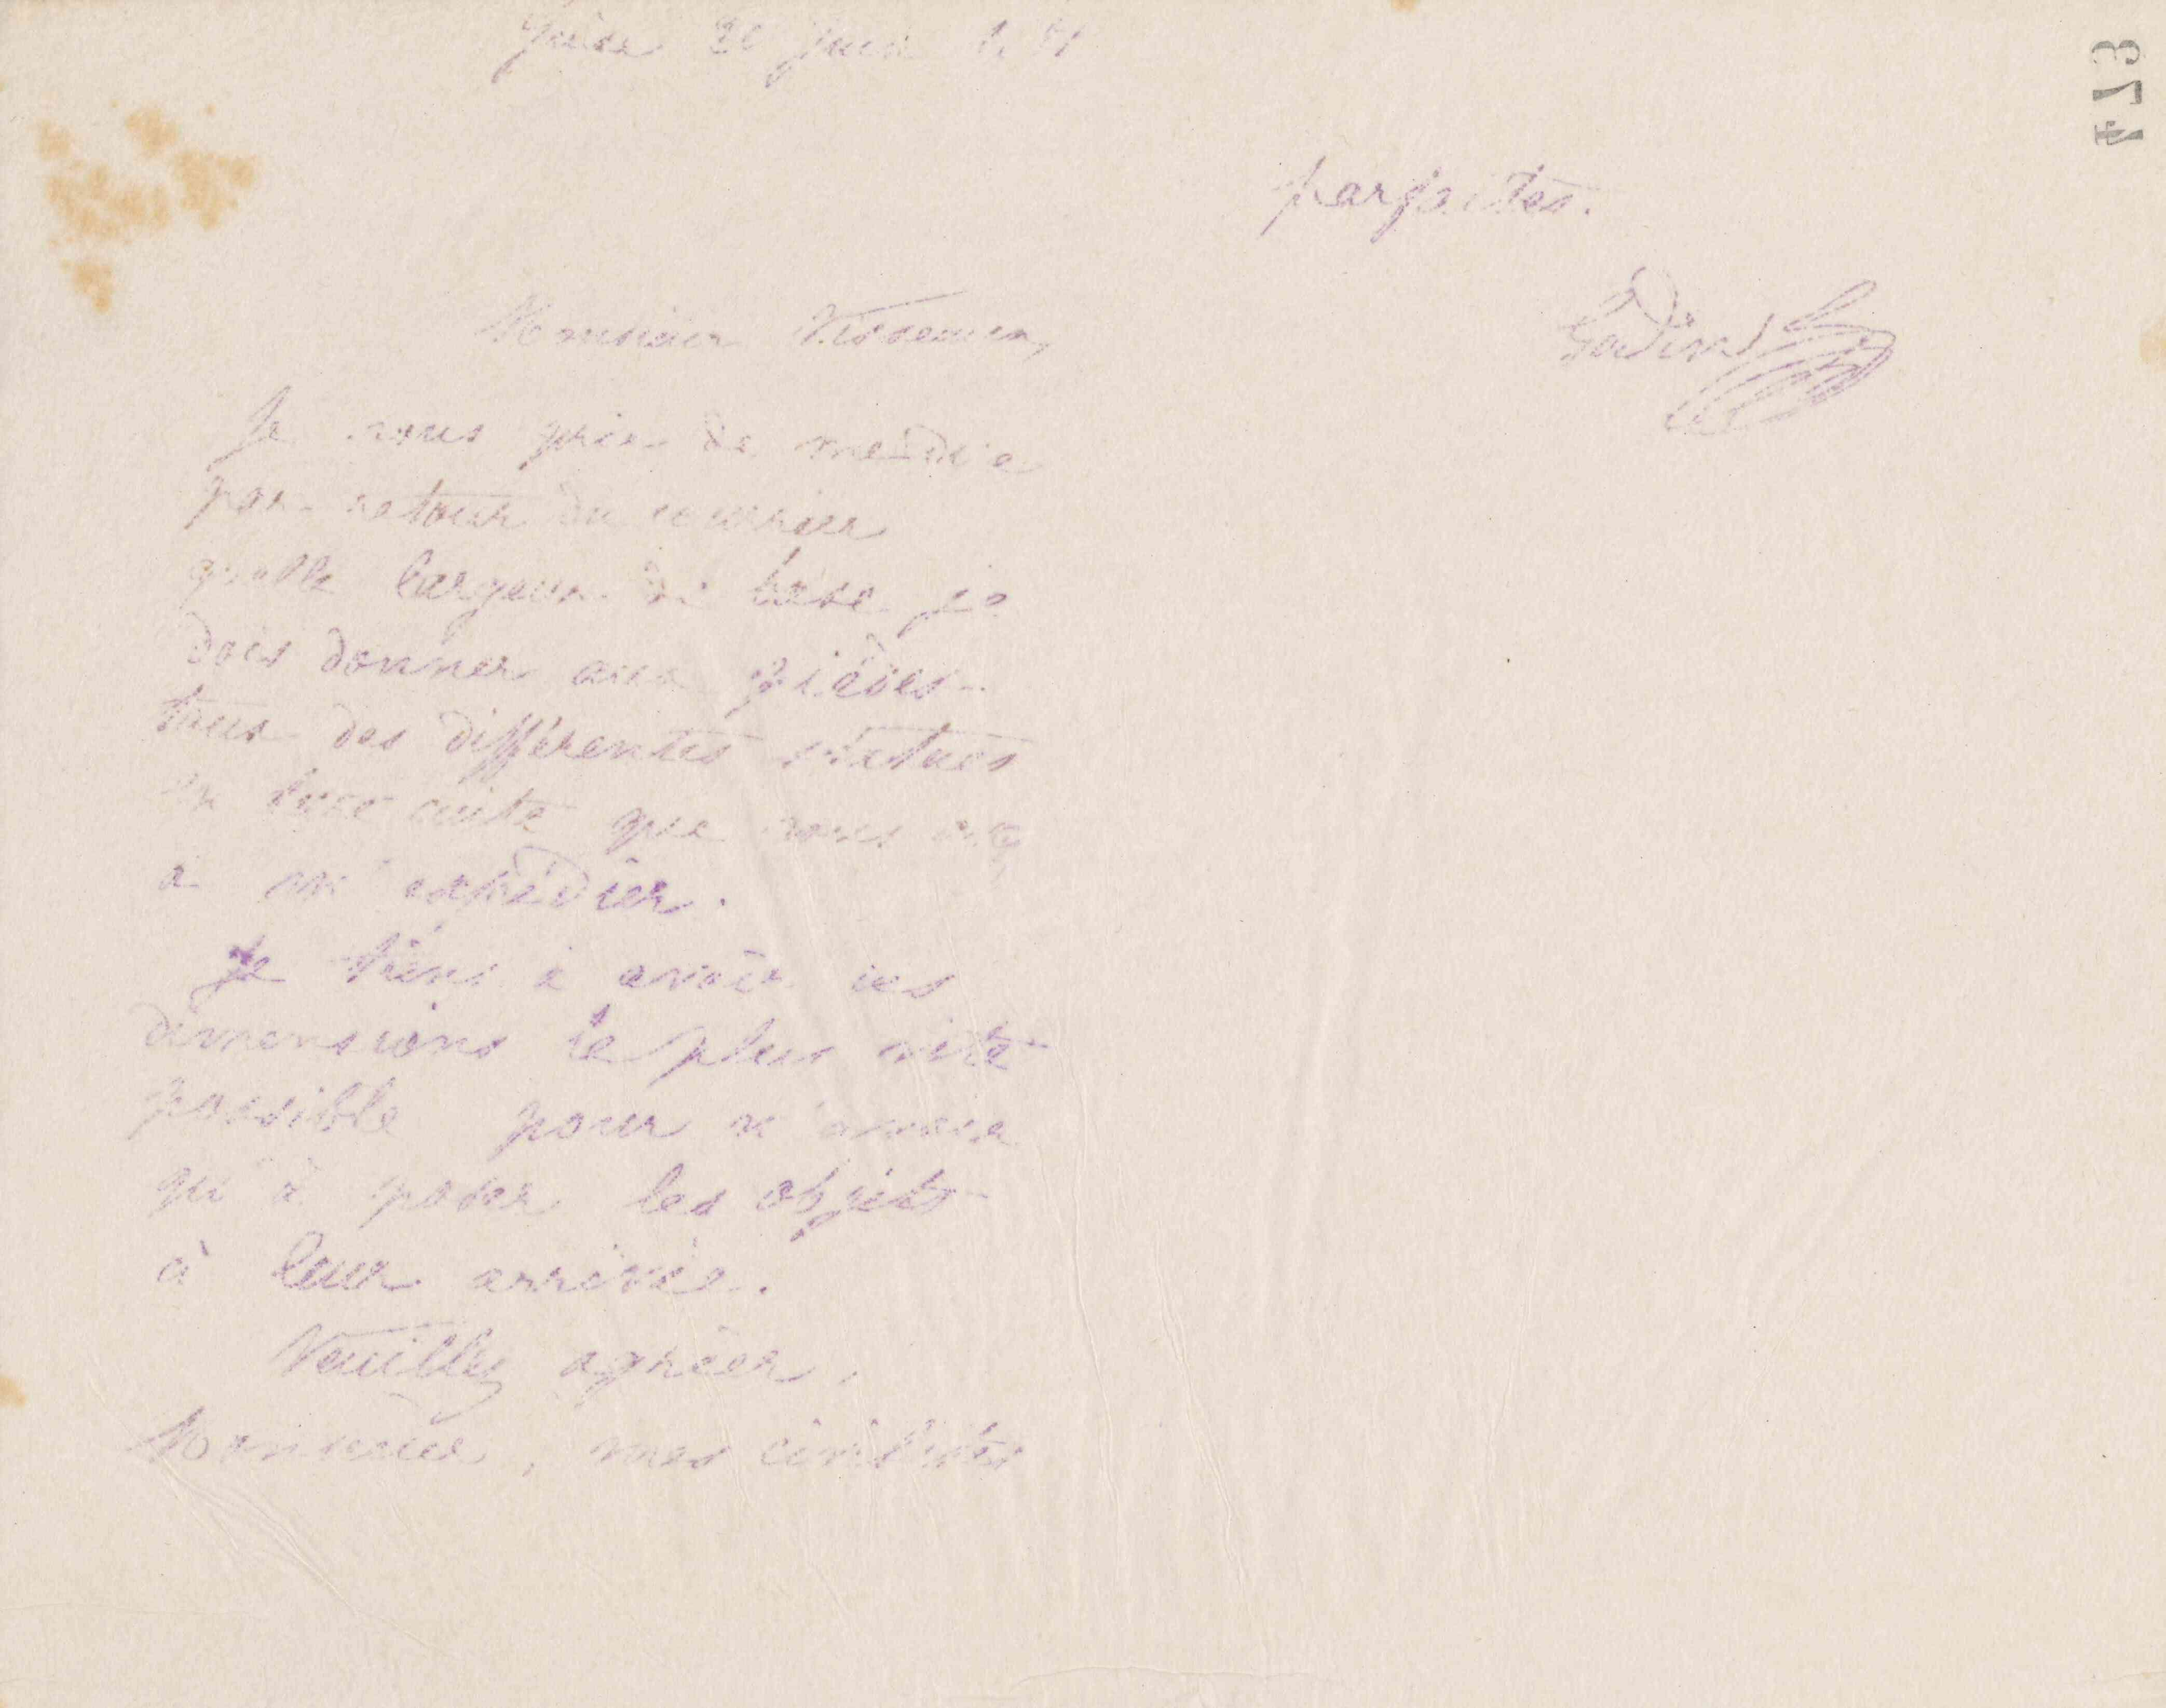 Guise 20 Juin
Monsieur
Je vous prie de me dire
par retour du courrier
quelle largeur de base je
dois donner aux piédes-
taux des différentes statues
en terre cuite que vous avez
à m'expédier.
Je tiens à avoir ces
dimensions le plus vite
possible pour n'avoir
qu'à poser les objets
à leur arrivée.
Veuillez agréer,
Monsieur, mes civilités
parfaites.
Godin
423